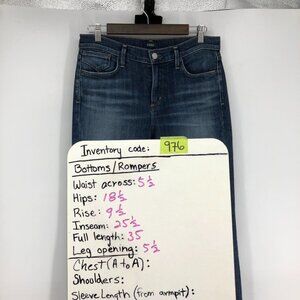 Inventory code: 976
Bottoms/Rompers
Waist across: 5½
Hips: 18½
Rise: 9½
Inseam: 25½
Full length: 35
Leg opening: 5½
Chest (A to A):
Shoulders:
Sleeve Length (from armpit):